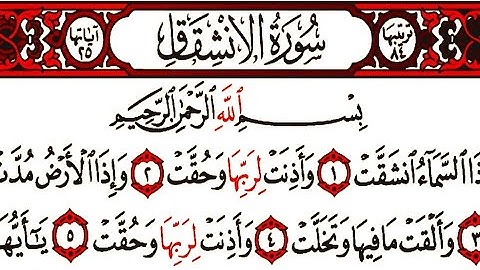 ترتيبها ٨٤ سُورَةُ الِانْشِقَاقِ آياتها ٢٥
بِسْمِ اللَّهِ الرَّحْمَٰنِ الرَّحِيمِ
ذَا السَّمَآءُ انشَقَّتْ ١ وَأَذِنَتْ لِرَبِّهَا وَحُقَّتْ ٢ وَإِذَا الْأَرْضُ مُدَّتْ
٣ وَأَلْقَتْ مَا فِيهَا وَتَخَلَّتْ ٤ وَأَذِنَتْ لِرَبِّهَا وَحُقَّتْ ٥ يَٰٓأَيُّهَا